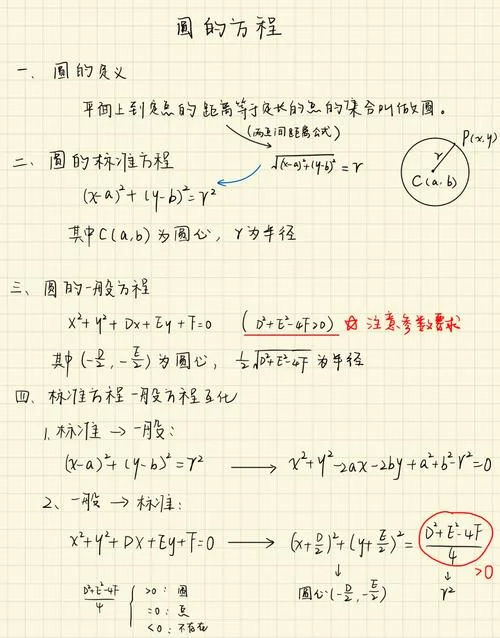 圆的方程
一、圆的定义
平面上到定点的距离等于定长的点的集合叫做圆。
(两点间距离公式)
P(x,y)
r
C(a,b)
二、圆的标准方程
√(x-a)²+(y-b)² = r
(x-a)²+(y-b)²=r²
其中C(a,b)为圆心，r为半径
三、圆的一般方程
x²+y²+Dx+Ey+F=0 (D²+E²-4F>0) ☆ 注意参数要求
其中(-D/2,-E/2)为圆心，1/2√D²+E²-4F 为半径
四、标准方程一般方程互化
1.标准→一般：
(x-a)²+(y-b)²=r² → x²+y²-2ax-2by+a²+b²-r²=0
2、一般→标准：
x²+y²+Dx+Ey+F=0 → (x+D/2)²+(y+E/2)²= D²+E²-4F/4 >0
↓ ↓
圆心(-D/2,-E/2) r²
D²+E²-4F/4 { >0：圆
=0：点
<0：不存在